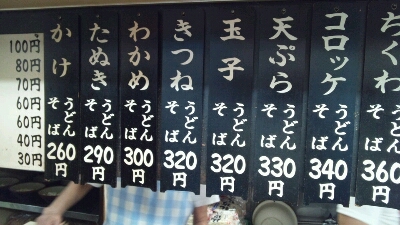 100円
80円
70円
60円
60円
40円
30円
かけ
うどん
そば
260円
たぬき
うどん
そば
290円
わかめ
うどん
そば
300円
きつね
うどん
そば
320円
玉子
うどん
そば
320円
天ぷら
うどん
そば
330円
コロッケ
うどん
そば
340円
ちくわ
うどん
そば
360円